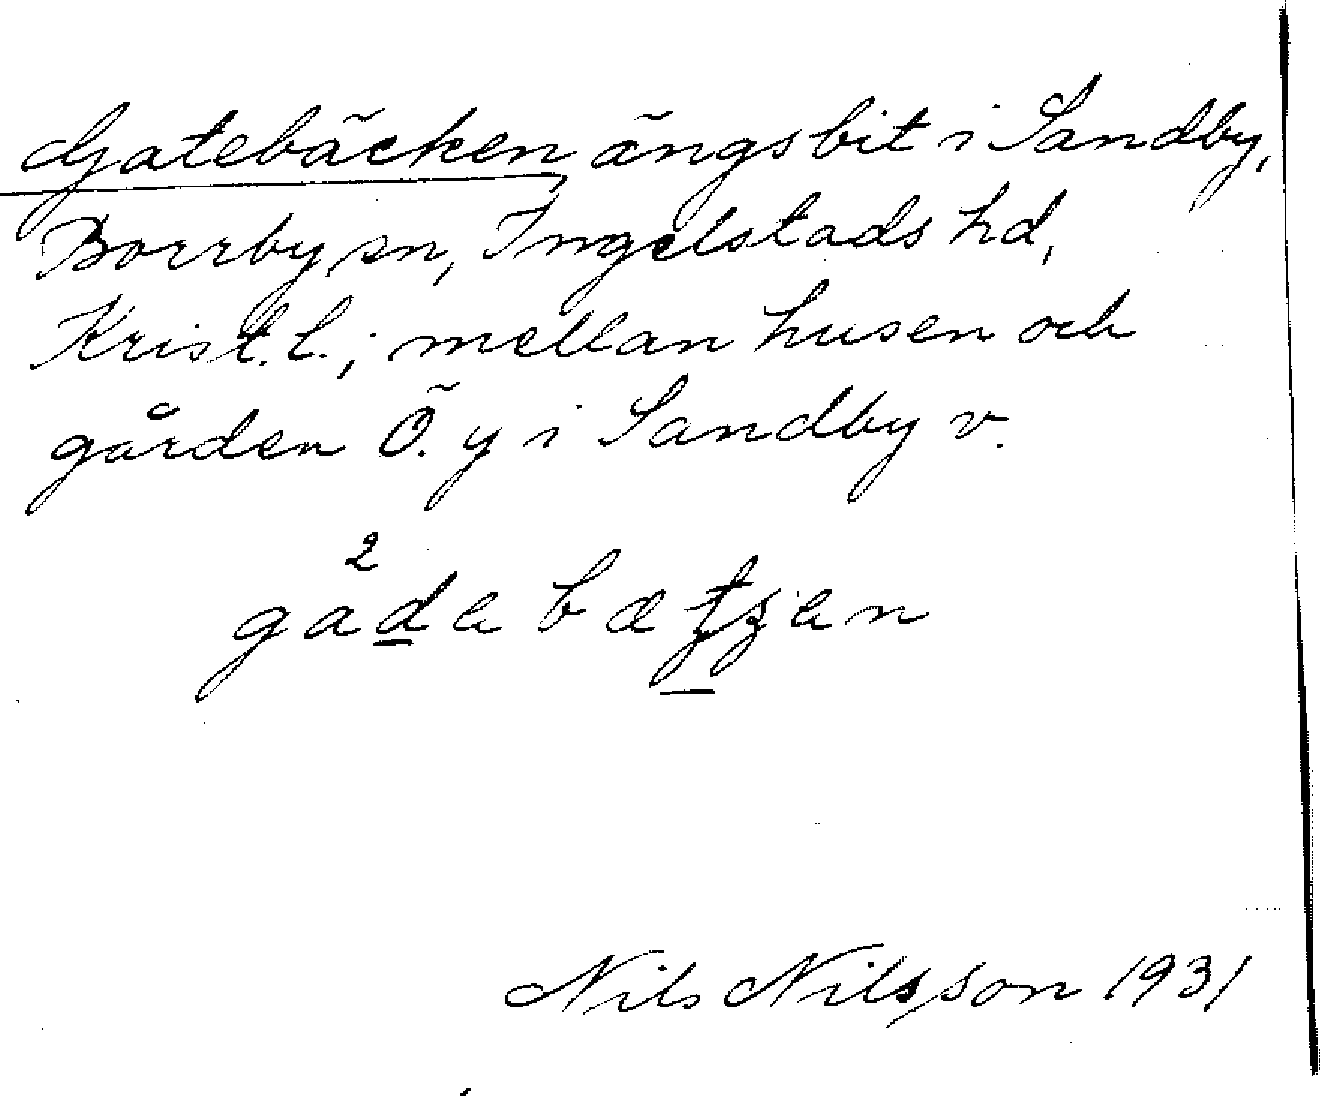 Gatebäcken, ängsbit i Sandby,
Borrby sn, Ingelstads hd,
Krist. l.; mellan husen och
gården Ö. y i Sandby v.
2
gadabætʒan
Nils Nilsson 1931